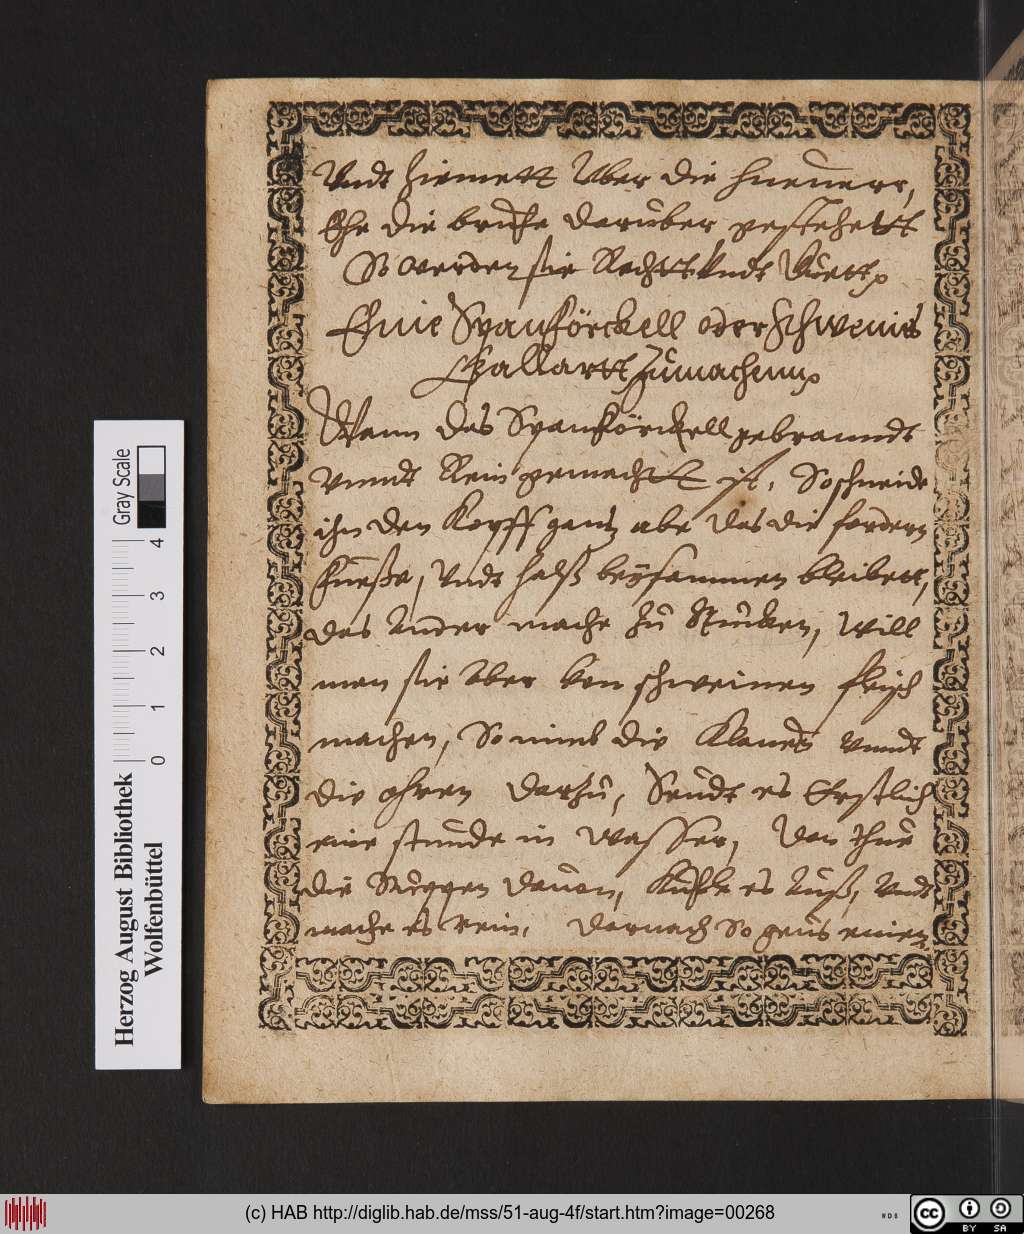 Vndt Ziemett Vber die Huenerr,
Ehe die brühe darüber gestehett
So werden sie Rechtt Vndt Guett
Ein Spanförckell oder Schweines
Gallartt Zumachenn
Wann das Spanförckell gebranndt
Vnndt Rein gemachtt ist, So schneide
ihn den Kopff gantz abe das die fordern
fuesse, Vndt halß beÿsammen bleibett,
das Ander mache Zu Stücken, Will
man sie Aber von schweinen fleisch
machen, So nimb die Klauen vnndt
die ohren darzu, Seudt es Erstlich
eine stunde in Wasser, Dan thue
die Suppen dauon, Kuhle es Auß, Vndt
mache es rein, darnach So geus einen
Herzog August Bibliothek
Wolfenbüttel
Gray Scale
0 1 2 3 4
(c) HAB http://diglib.hab.de/mss/51-aug-4f/start.htm?image=00268
WDB
cc BY SA